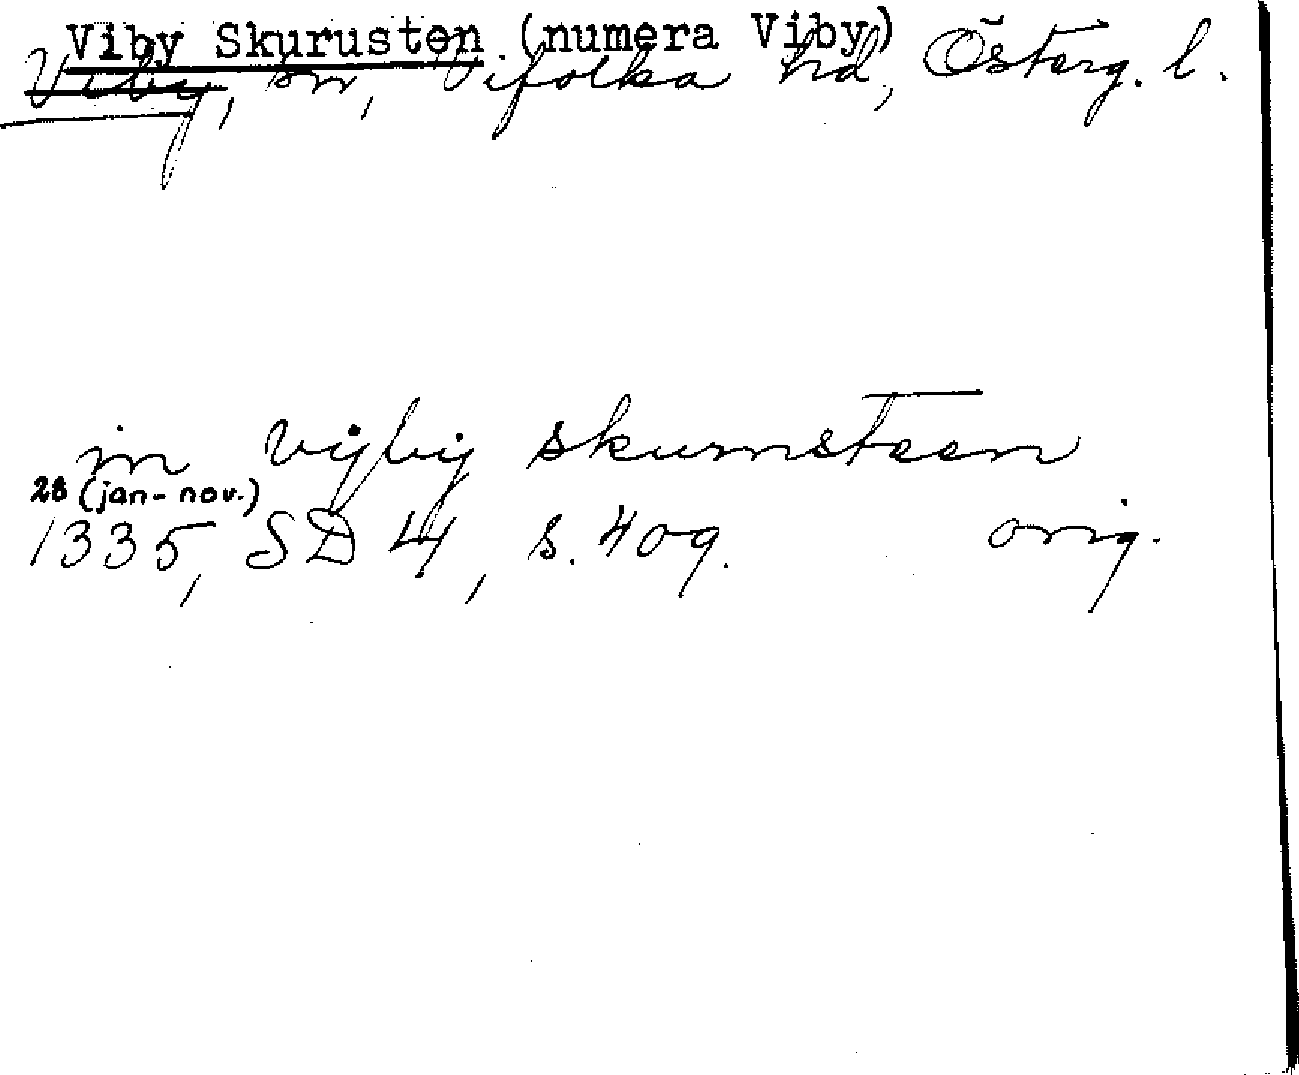 Viby Skurusten (numera Viby)
Viby, sn, Vifolka hd, Österg. l.
in vijby skurusteen
28 (jan-nov.)
1335, SD 4, s. 409. orig.